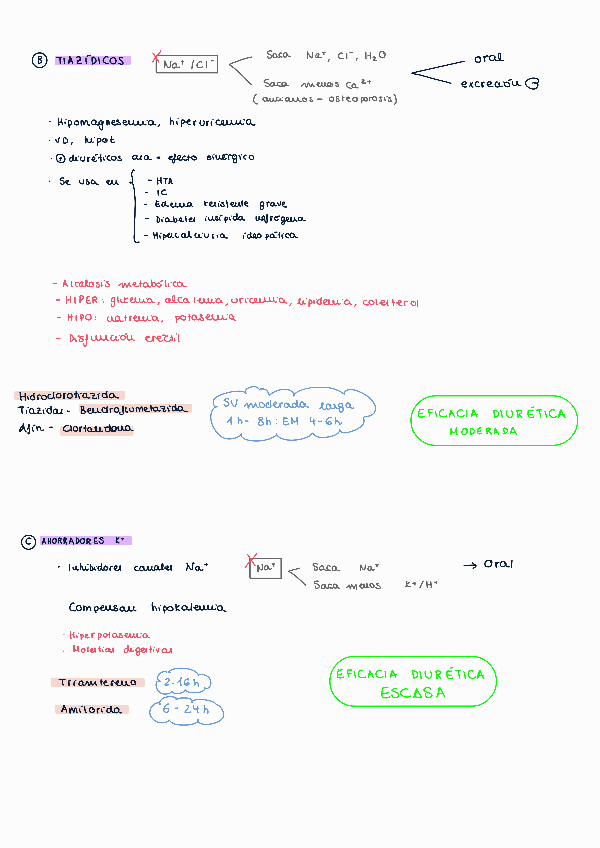 B TIAZÍDICOS
Na⁺/Cl⁻
Saca Na⁺, Cl⁻, H₂O
Saca menos Ca²⁺
(ancianos - osteoporosis)
oral
excreción
· Hipomagnesemia, hiperuricemia
· VD, hipot
· + diuréticos asa = efecto sinérgico
· Se usa en
- HTA
- IC
- Edema resistente grave
- Diabetes insípida nefrógena
- Hipercalciuria idiopática
- Alcalosis metabólica
- HIPER: glicemia, calcemia, uricemia, lipidemia, colesterol
- HIPO: natremia, potasemia
- Disfunción eréctil
Hidroclorotiazida
Tiazidas - Bendroflumetazida
Afín - Clortalidona
SV moderada larga
1h - 8h: EM 4-6h
EFICACIA DIURÉTICA
MODERADA
C AHORRADORES K⁺
· Inhibidores canales Na⁺
Na⁺
Saca Na⁺
Saca menos K⁺/H⁺
→ Oral
Compensan hipokalemia
· Hiperpotasemia
· Molestias digestivas
Triamtereno
2-16h
Amilorida
6-24h
EFICACIA DIURÉTICA
ESCASA